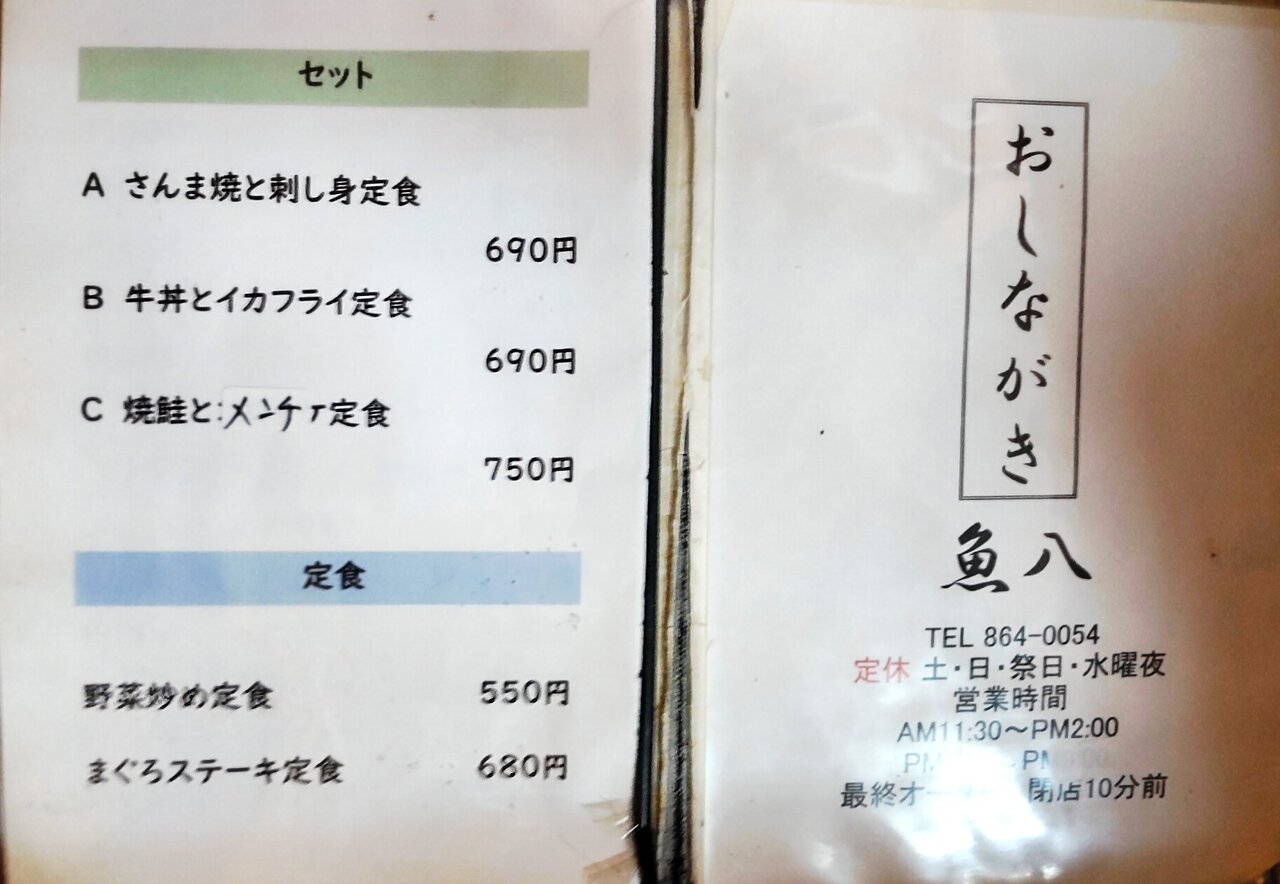 セット
A さんま焼と刺し身定食
690円
B 牛丼とイカフライ定食
690円
C 焼鮭とメンチァ定食
750円
定食
野菜炒め定食 550円
まぐろステーキ定食 680円
おしながき
魚八
TEL 864-0054
定休 土・日・祭日・水曜夜
営業時間
AM11:30～PM2:00
最終オ 閉店10分前